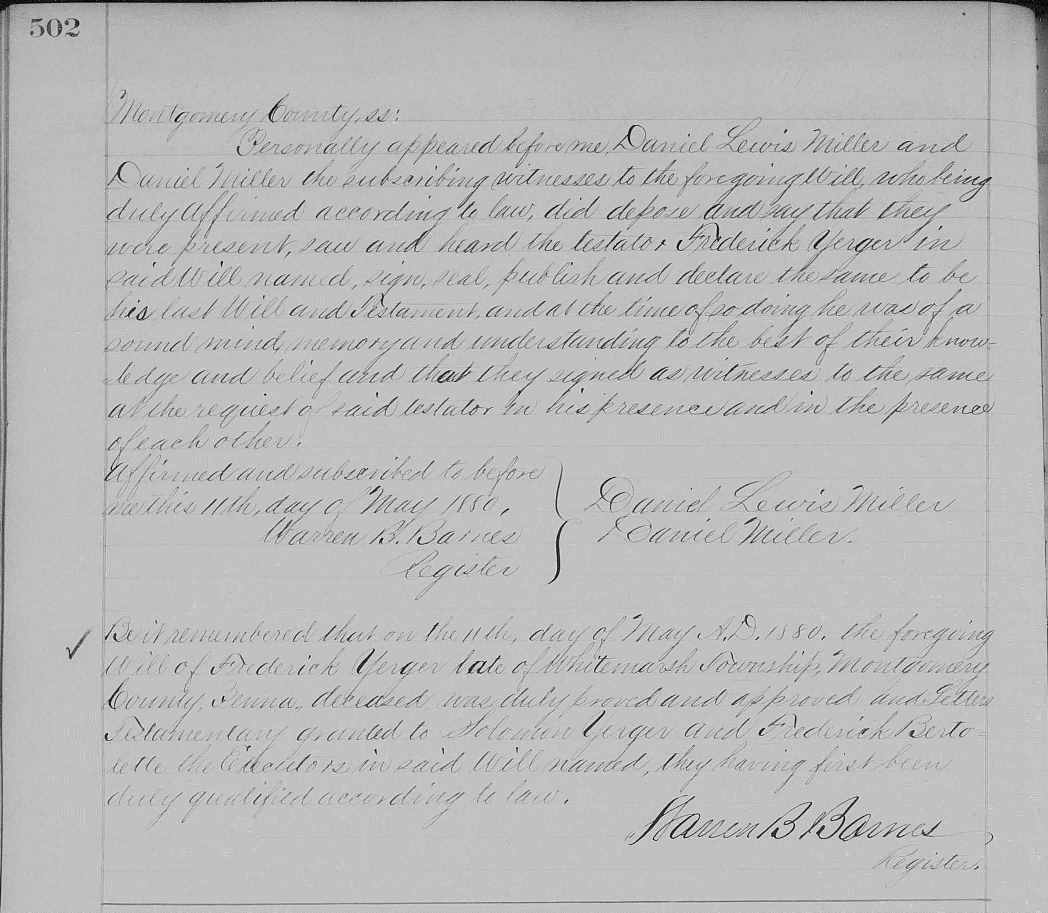 502
Montgomery County, ss:
Personally appeared before me, Daniel Lewis Miller and
Daniel Miller the subscribing witnesses to the foregoing Will, who being
duly affirmed according to law, did depose and say that they
were present, saw and heard the testator Frederick Yerger in
said Will named, sign, seal, publish and declare the same to be
his last Will and Testament, and at the time of so doing he was of a
sound mind, memory and understanding to the best of their know-
ledge and belief and that they signed as witnesses to the same
at the request of said testator in his presence and in the presence
of each other.
Affirmed and subscribed to before
me this 11th, day of May 1880.
Warren B. Barnes
Register
Daniel Lewis Miller
Daniel Miller.
Be it remembered that on the 11th, day of May A.D. 1880. the foregoing
Will of Frederick Yerger late of Whitemarsh Township, Montgomery
County, Penna., deceased was duly proved and approved and Letters
Testamentary granted to Solomon Yerger and Frederick Berto-
lette the Executors in said Will named, they having first been
duly qualified according to law.
Warren B Barnes
Register.